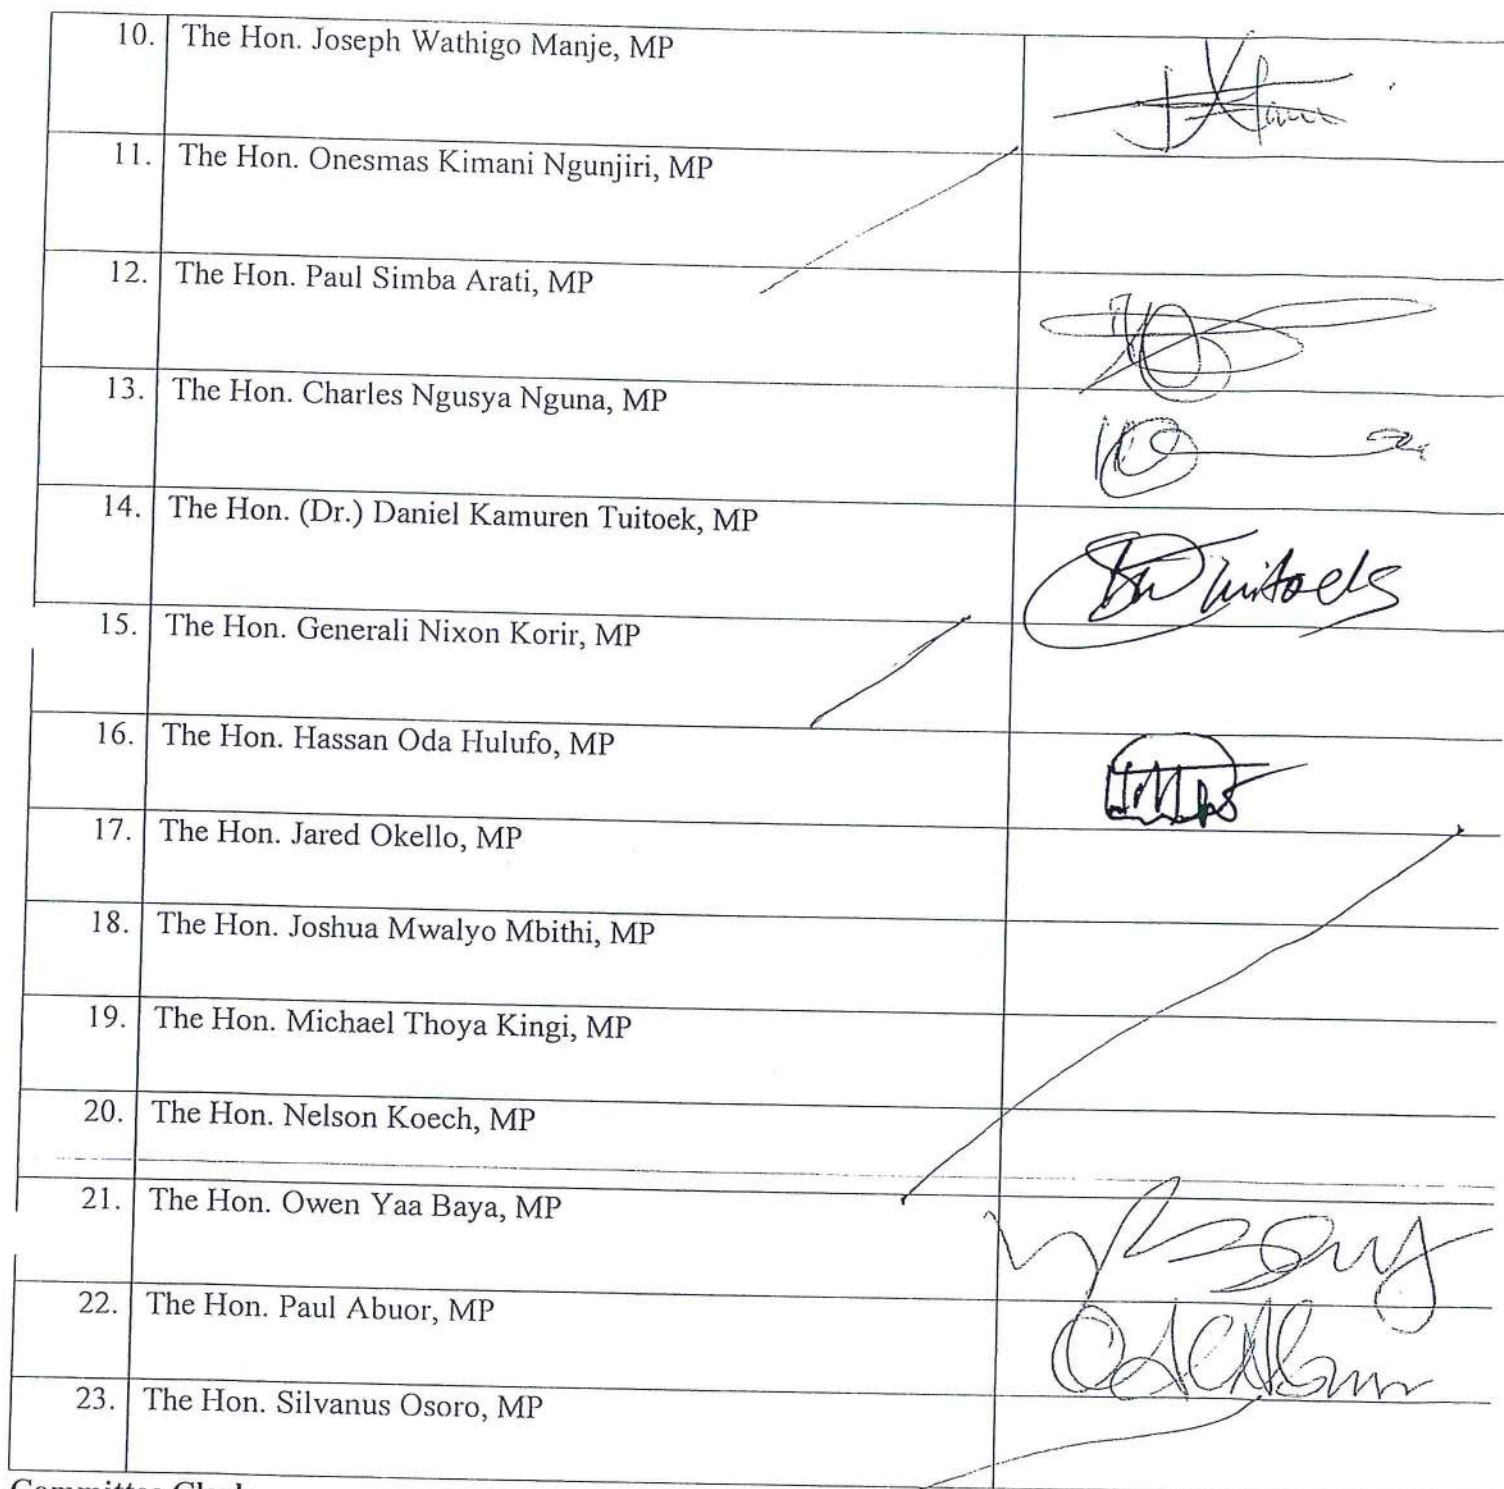 10. The Hon. Joseph Wathigo Manje, MP
11. The Hon. Onesmas Kimani Ngunjiri, MP
12. The Hon. Paul Simba Arati, MP
13. The Hon. Charles Ngusya Nguna, MP
14. The Hon. (Dr.) Daniel Kamuren Tuitoek, MP
15. The Hon. Generali Nixon Korir, MP
16. The Hon. Hassan Oda Hulufo, MP
17. The Hon. Jared Okello, MP
18. The Hon. Joshua Mwalyo Mbithi, MP
19. The Hon. Michael Thoya Kingi, MP
20. The Hon. Nelson Koech, MP
21. The Hon. Owen Yaa Baya, MP
22. The Hon. Paul Abuor, MP
23. The Hon. Silvanus Osoro, MP